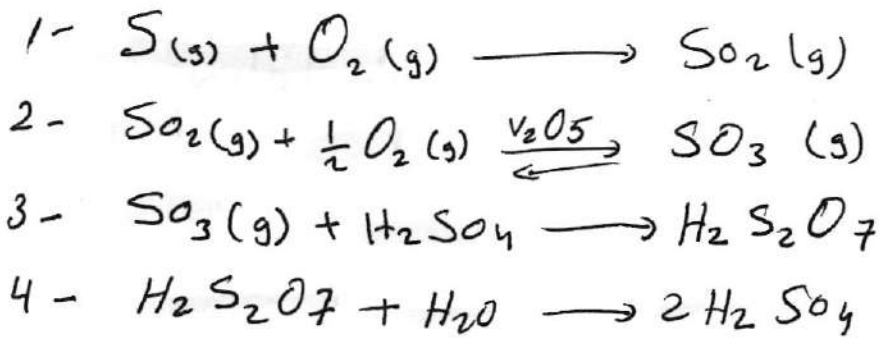 1- S(s) + O₂(g) ⟶ SO₂(g)
2- SO₂(g) + ½ O₂(g) ⇌ V₂O5 SO₃(g)
3- SO₃(g) + H₂SO₄ ⟶ H₂S₂O₇
4- H₂S₂O7 + H₂O ⟶ 2H₂SO₄